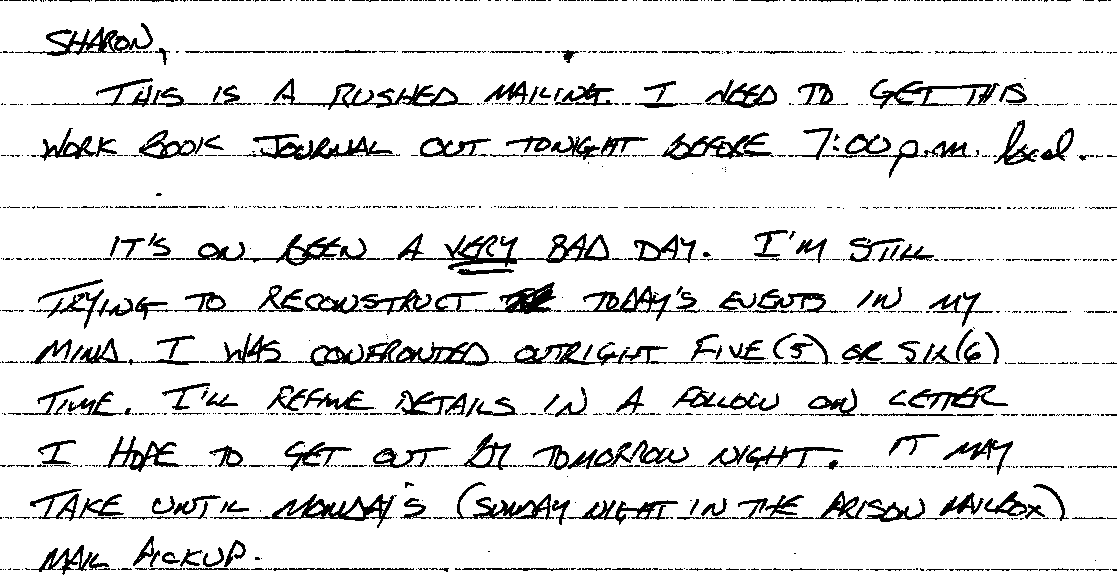 SHARON,
THIS IS A RUSHED MAILING. I NEED TO GET THIS
WORK BOOK JOURNAL OUT TONIGHT BEFORE 7:00 p.m. local.
IT'S ON. BEEN A VERY BAD DAY. I'M STILL
TRYING TO RECONSTRUCT TODAY'S EVENTS IN MY
MIND. I WAS CONFRONTED OUTRIGHT FIVE (5) OR SIX (6)
TIME. I'LL REFINE DETAILS IN A FOLLOW ON LETTER
I HOPE TO GET OUT BY TOMORROW NIGHT. IT MAY
TAKE UNTIL MONDAY'S (SUNDAY NIGHT IN THE PRISON MAILBOX)
MAIL PICKUP.